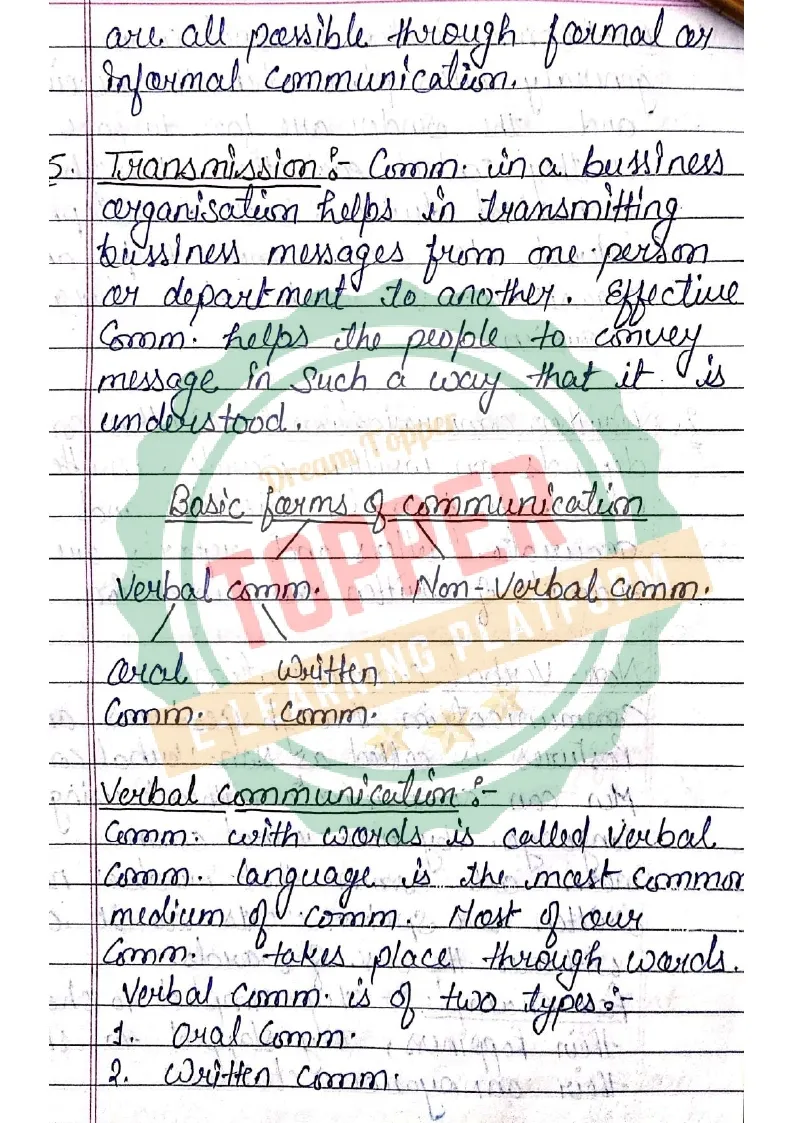 are all possible through formal or
informal communication.
5. Transmission :- Comm. in a bussiness
organisation helps in transmitting
bussiness messages from one person
or department to another. Effective
Comm. helps the people to convey
message in such a way that it is
understood.
Dream Topper
Basic forms of communication
TOPPER
Verbal comm. Non-Verbal comm.
E-LEARNING PLATFORM
Oral Written
Comm. Comm.
Verbal communication :-
Comm. with words is called Verbal
Comm. language is the most common
medium of comm. Most of our
Comm. takes place through words.
Verbal Comm. is of two types :-
1. Oral Comm.
2. Written Comm.